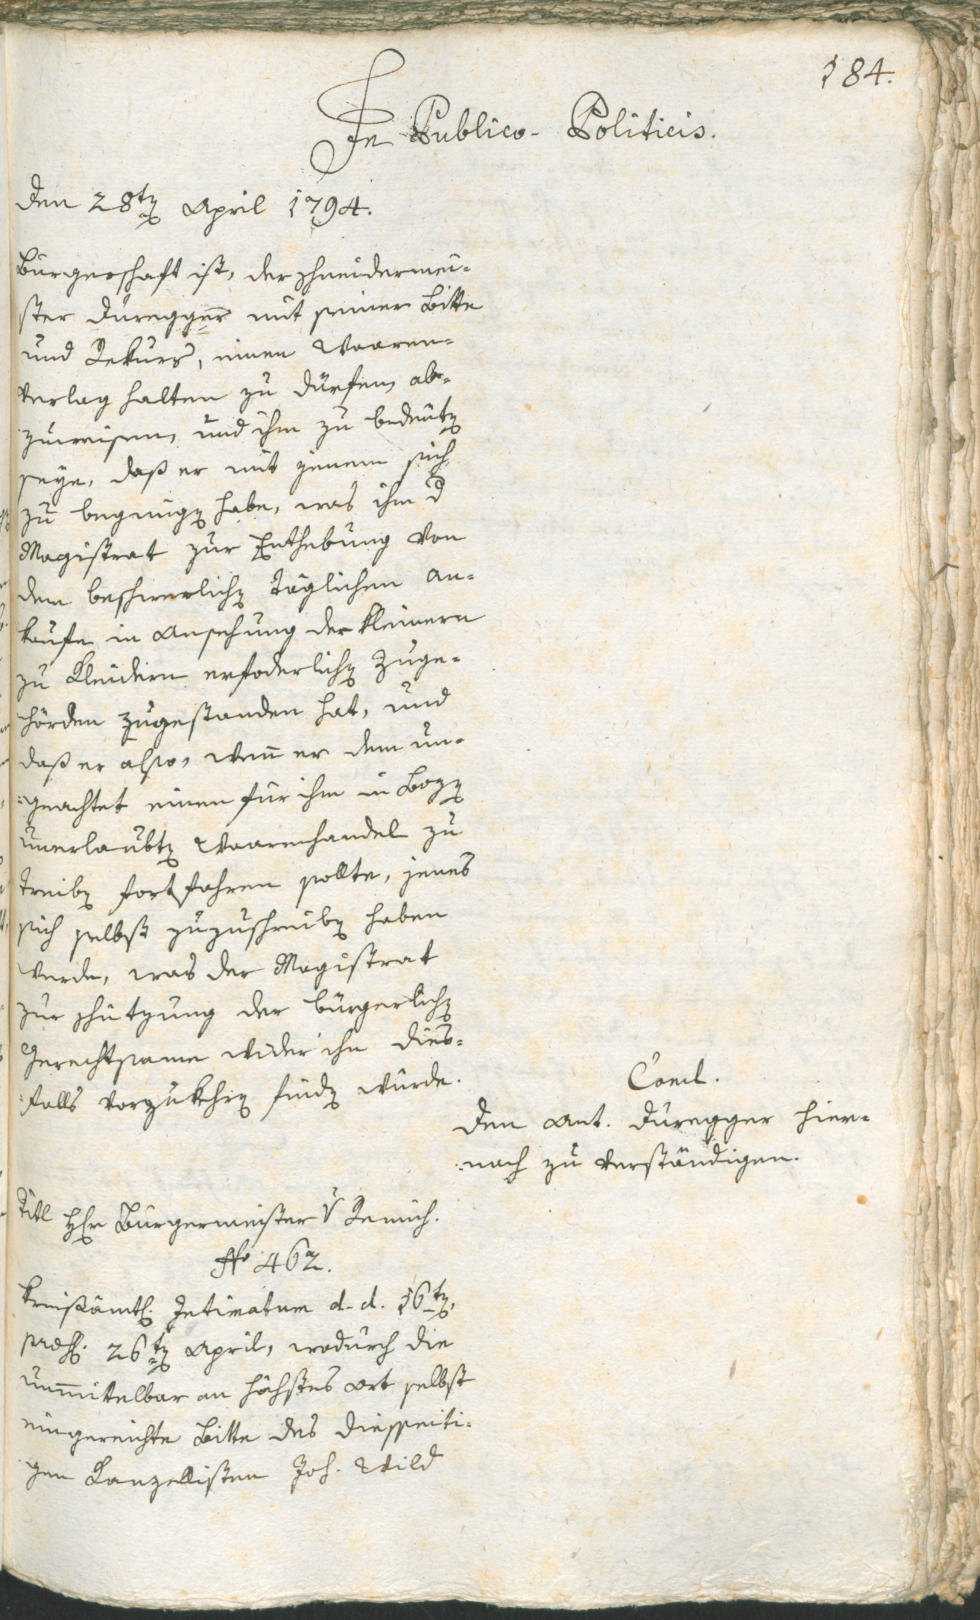 184.
In Publico-Politicis.
Den 28ten April 1794.
Bürgerschaft ist, der Schneidermei-
ster Duregger mit seiner Bitte
und Rekurs, einen Waaren-
verlag halten zu dürfen, ab-
zuweisen, und ihm zu bedeuten
seye, daß er mit jenem sich
zu begnügen habe, was ihm der
Magistrat zur Enthebung von
dem beschwerlichen täglichen An-
kaufe in Ansehung der kleinern
zu Kleidern erfoderlichen Zuge-
hörden zugestanden hat, und
daß er also, wenn er dem un-
geachtet einen für ihm in Bozen
unerlaubten Waarenhandel zu
treiben fortfahren sollte, jenes
sich selbst zuzuschreiben haben
werde, was der Magistrat
zur Schützung der bürgerlichen
Gerechtsame wider ihn dies-
falls vorzukehren finden würde.
Concl.
Den Ant. Duregger hier-
nach zu verständigen.
Titl Herr Bürgermeister v Remich.
No 462.
Kreißämtl. Intimatum d. d. 16ten,
præs. 26ten April, wodurch die
unmittelbar an höchstes Ort selbst
eingereichte Bitte des diesseiti-
gen Kanzellisten Joh. Wild